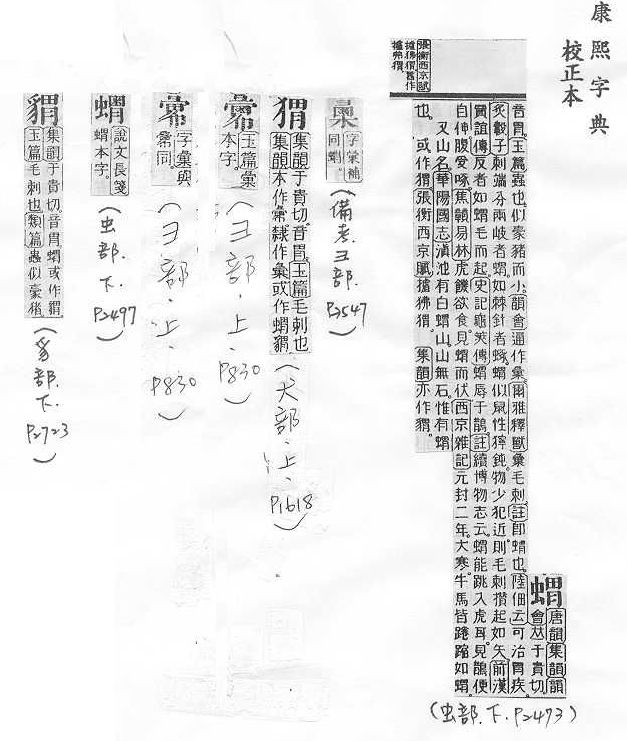 康熙字典
校正本
蝟
唐韻集韻韻
會𠀤于貴切
音胃。玉篇蟲也似豪豬而小。韻會通作彙。爾雅釋獸彙毛刺。註卽蝟也。陸佃云可治胃疾。
炙轂子刺端分兩岐者蝟如棘針者蝟似鼠性獰鈍物少犯近則毛刺攢起如矢。前漢
賈誼傳反者如蝟毛而起史記龜筴傳蝟辱于鵲。註續博物志云。蝟能跳入虎耳見鵲便
自仰腹受啄。焦贛易林虎饑欲食見蝟而伏。西京雜記元封二年。大寒牛馬皆踡蹜如蝟。
又山名華陽國志滇池有白蝟山山無石惟有蝟
也。或作猬張衡西京賦摣狒猬。集韻亦作
(虫部.下.P2473)
張衡西京賦
摣狒猬舊作
摣弗猬
字彙補
同蝟。
(備考.彐部.P3547)
猬
集韻于貴切。音胃。玉篇毛刺也
集韻本作彙隸作彙或作蝟
(犬部.上.P1618)
玉篇彙
本字。
(彐部.上.P830)
字彙與
彙同。
(彐部.上.P830)
蝟
說文長箋
蝟本字。
(虫部.下.P2497)
集韻于貴切音胃蝟或作
玉篇毛刺也類篇蟲似豪豬
(豸部.下.P2723)